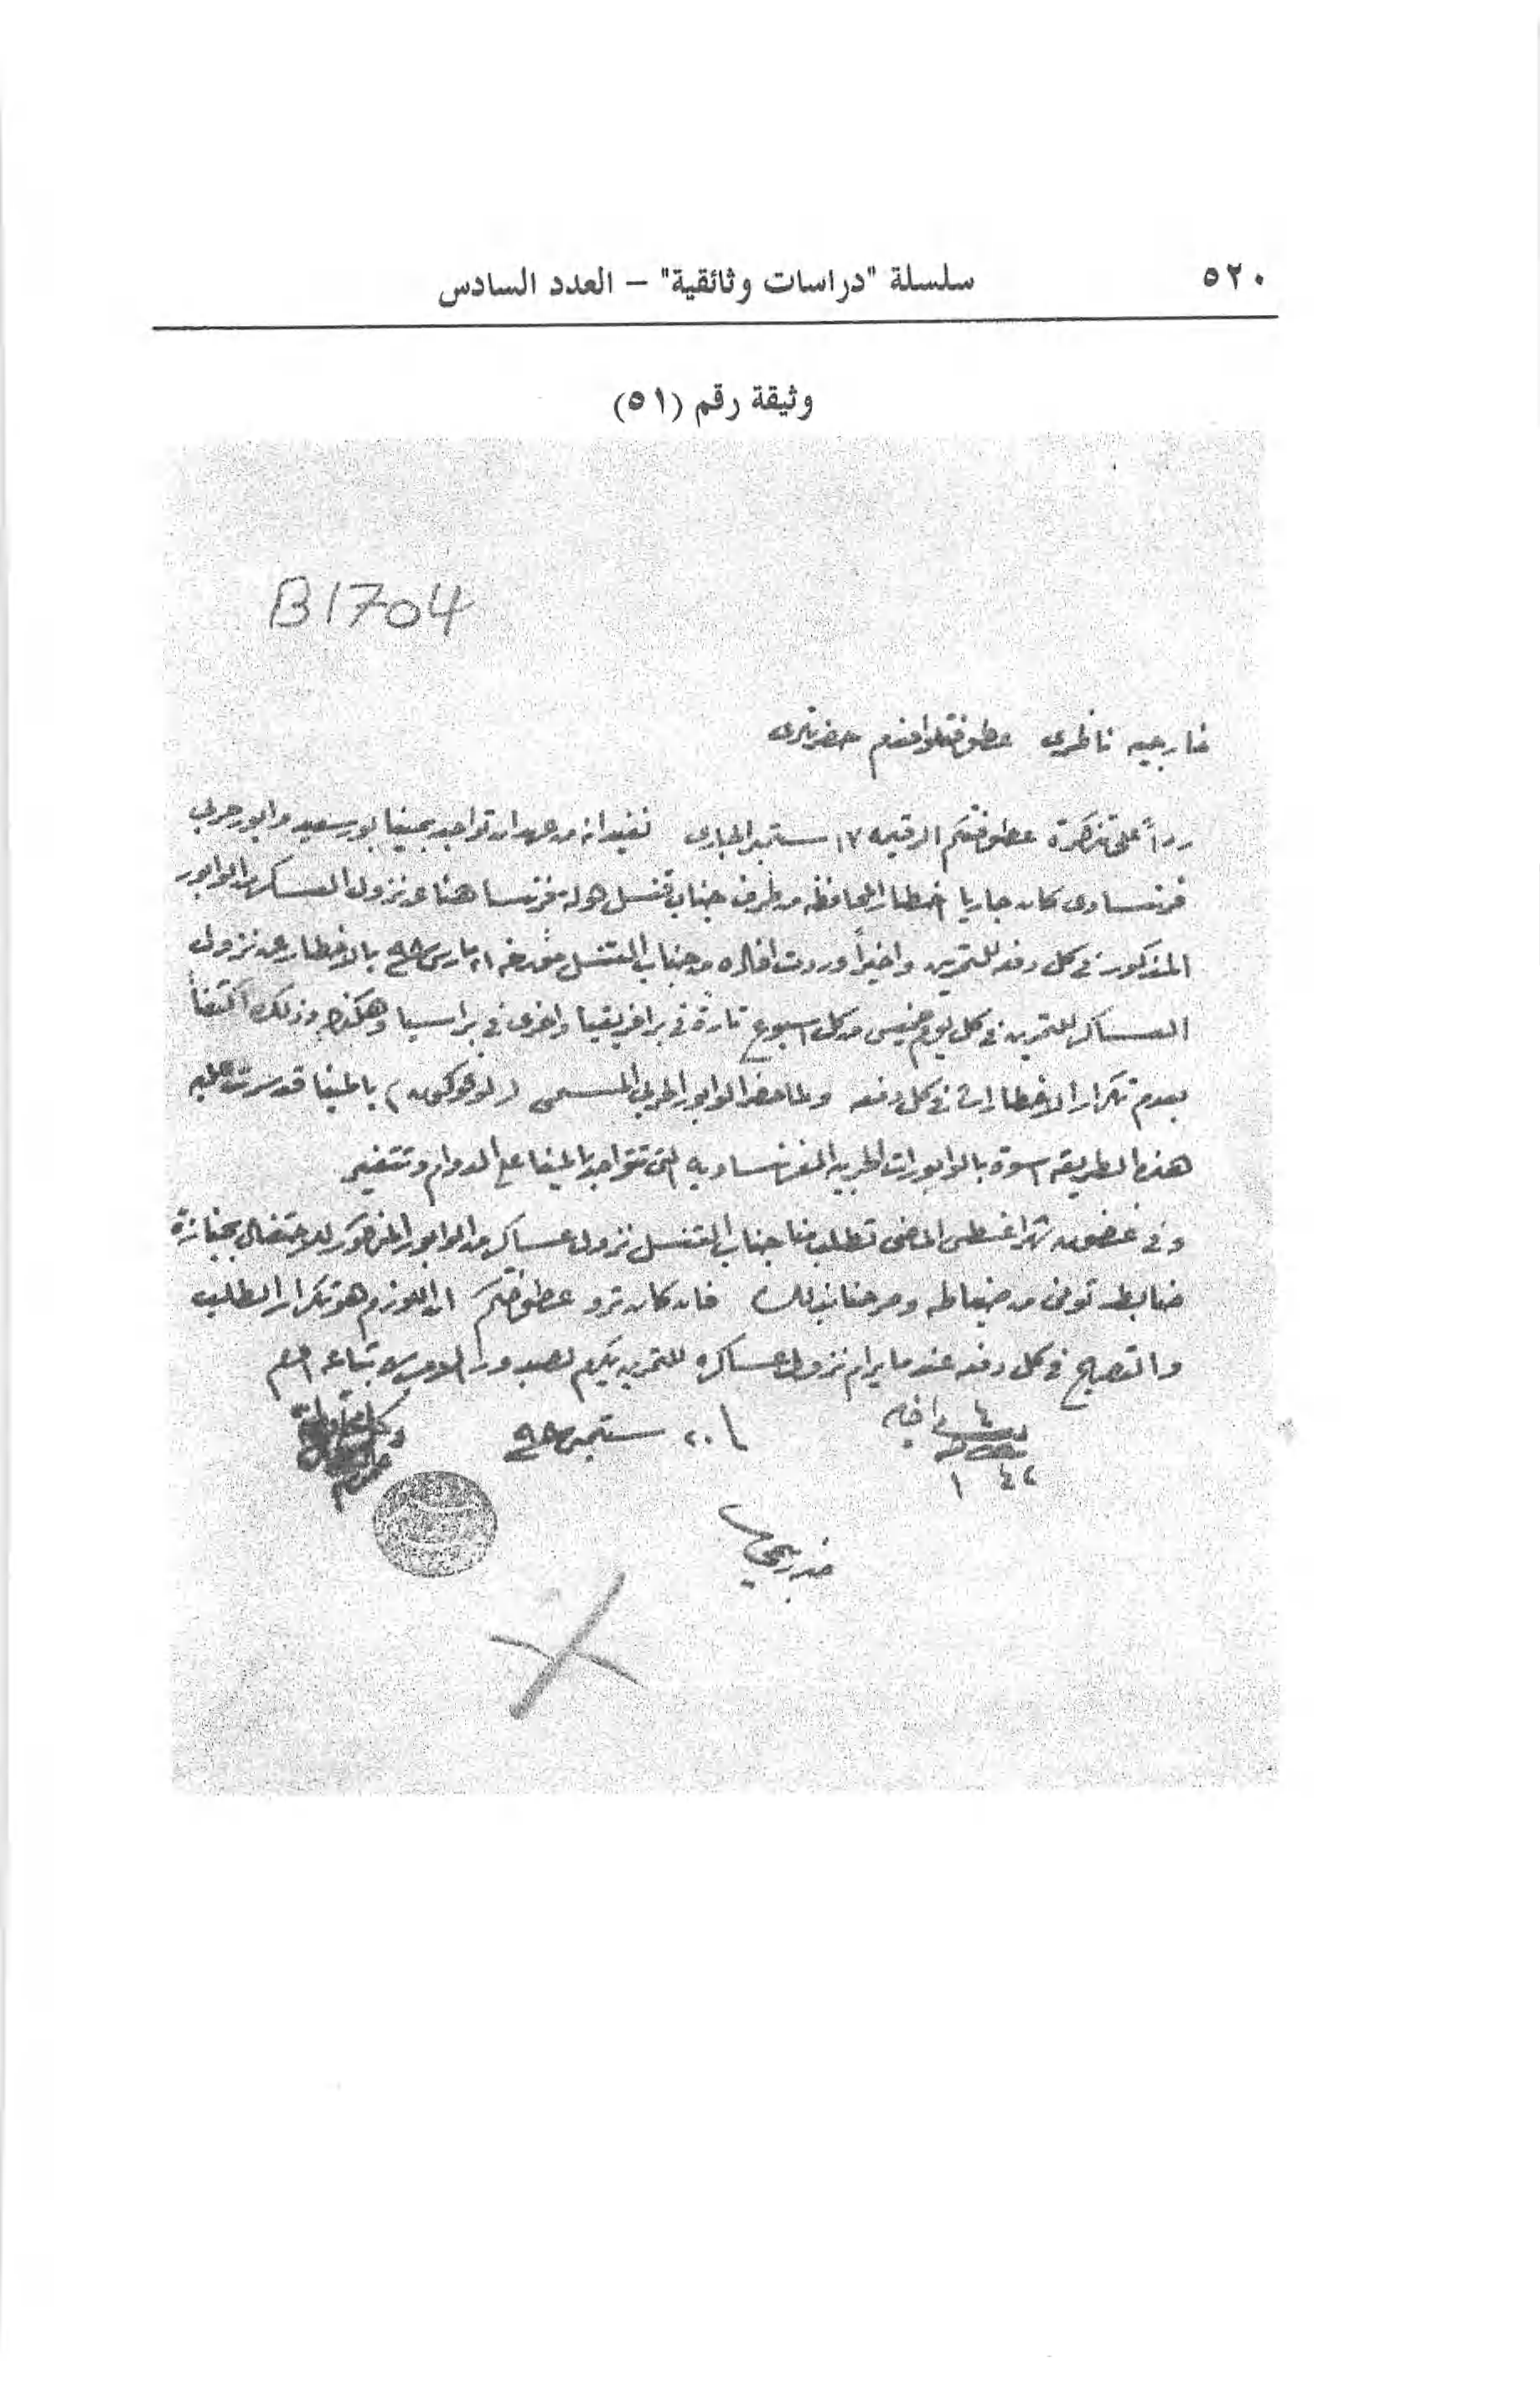 ٥٢٠
سلسلة "دراسات وثائقية" – العدد السادس
وثيقة رقم (٥١)
B1704
خارجيه ناظرى عطوفتلوافندم حضرتلرى
رداً على تذكرة عطوفتكم الرقيمه ١٧ ستمبر الجارى نفيد انه من عهد ان تواجد بمينا بورسعيد وابور حربى
فرنساوى كان جاريا اخطار المحافظه من طرف جناب قنسل دولة فرنسا هنا عن نزول العسكر من الوابور
المذكور فى كل دفعه للتمرين واخيراً وردت افاده من جناب القنسل مؤرخه ٢١ مارس ٩٨ بالاخطار عن نزول
العساكر للتمرين فى كل يوم خميس من كل اسبوع تارة فى بر افريقيا واخرى فى بر اسيا وهكذا وذلك اكتفاً
بعدم تكرار الاخطارات فى كل دفعه ولما حضر الوابور الحربى المسمى ( ) بالمينا قد سرت عليه
هذه الطريقه اسوة بالوابورات الحربيه الفرنساويه التى تتواجد بالمينا على الدوام وتتغير
وفى غضون شهر اغسطس الماضى تطلب منا جناب القنسل نزول عساكر من الوابور المذكور للاحتفال بجنازة
ضابط توفى من ضباطه وصرحنا بذلك فان كان ترو عطوفتكم ان اللزوم هو تكرار الطلب
والتصريح فى كل دفعه عندما يرام نزول عساكره للتمرين يكرم بصدور الامر لاتباعه افندم
٢٠ ستمبر ٩٨